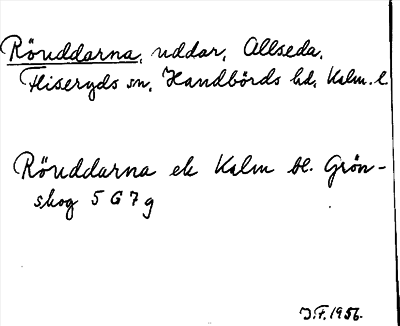 Röuddarna, uddar, Allseda,
Fliseryds sn, Handbörds hd, Kalm. l
Röuddarna ek Kalm bl. Grön-
skog 5 G 7 g
J.F. 1956.